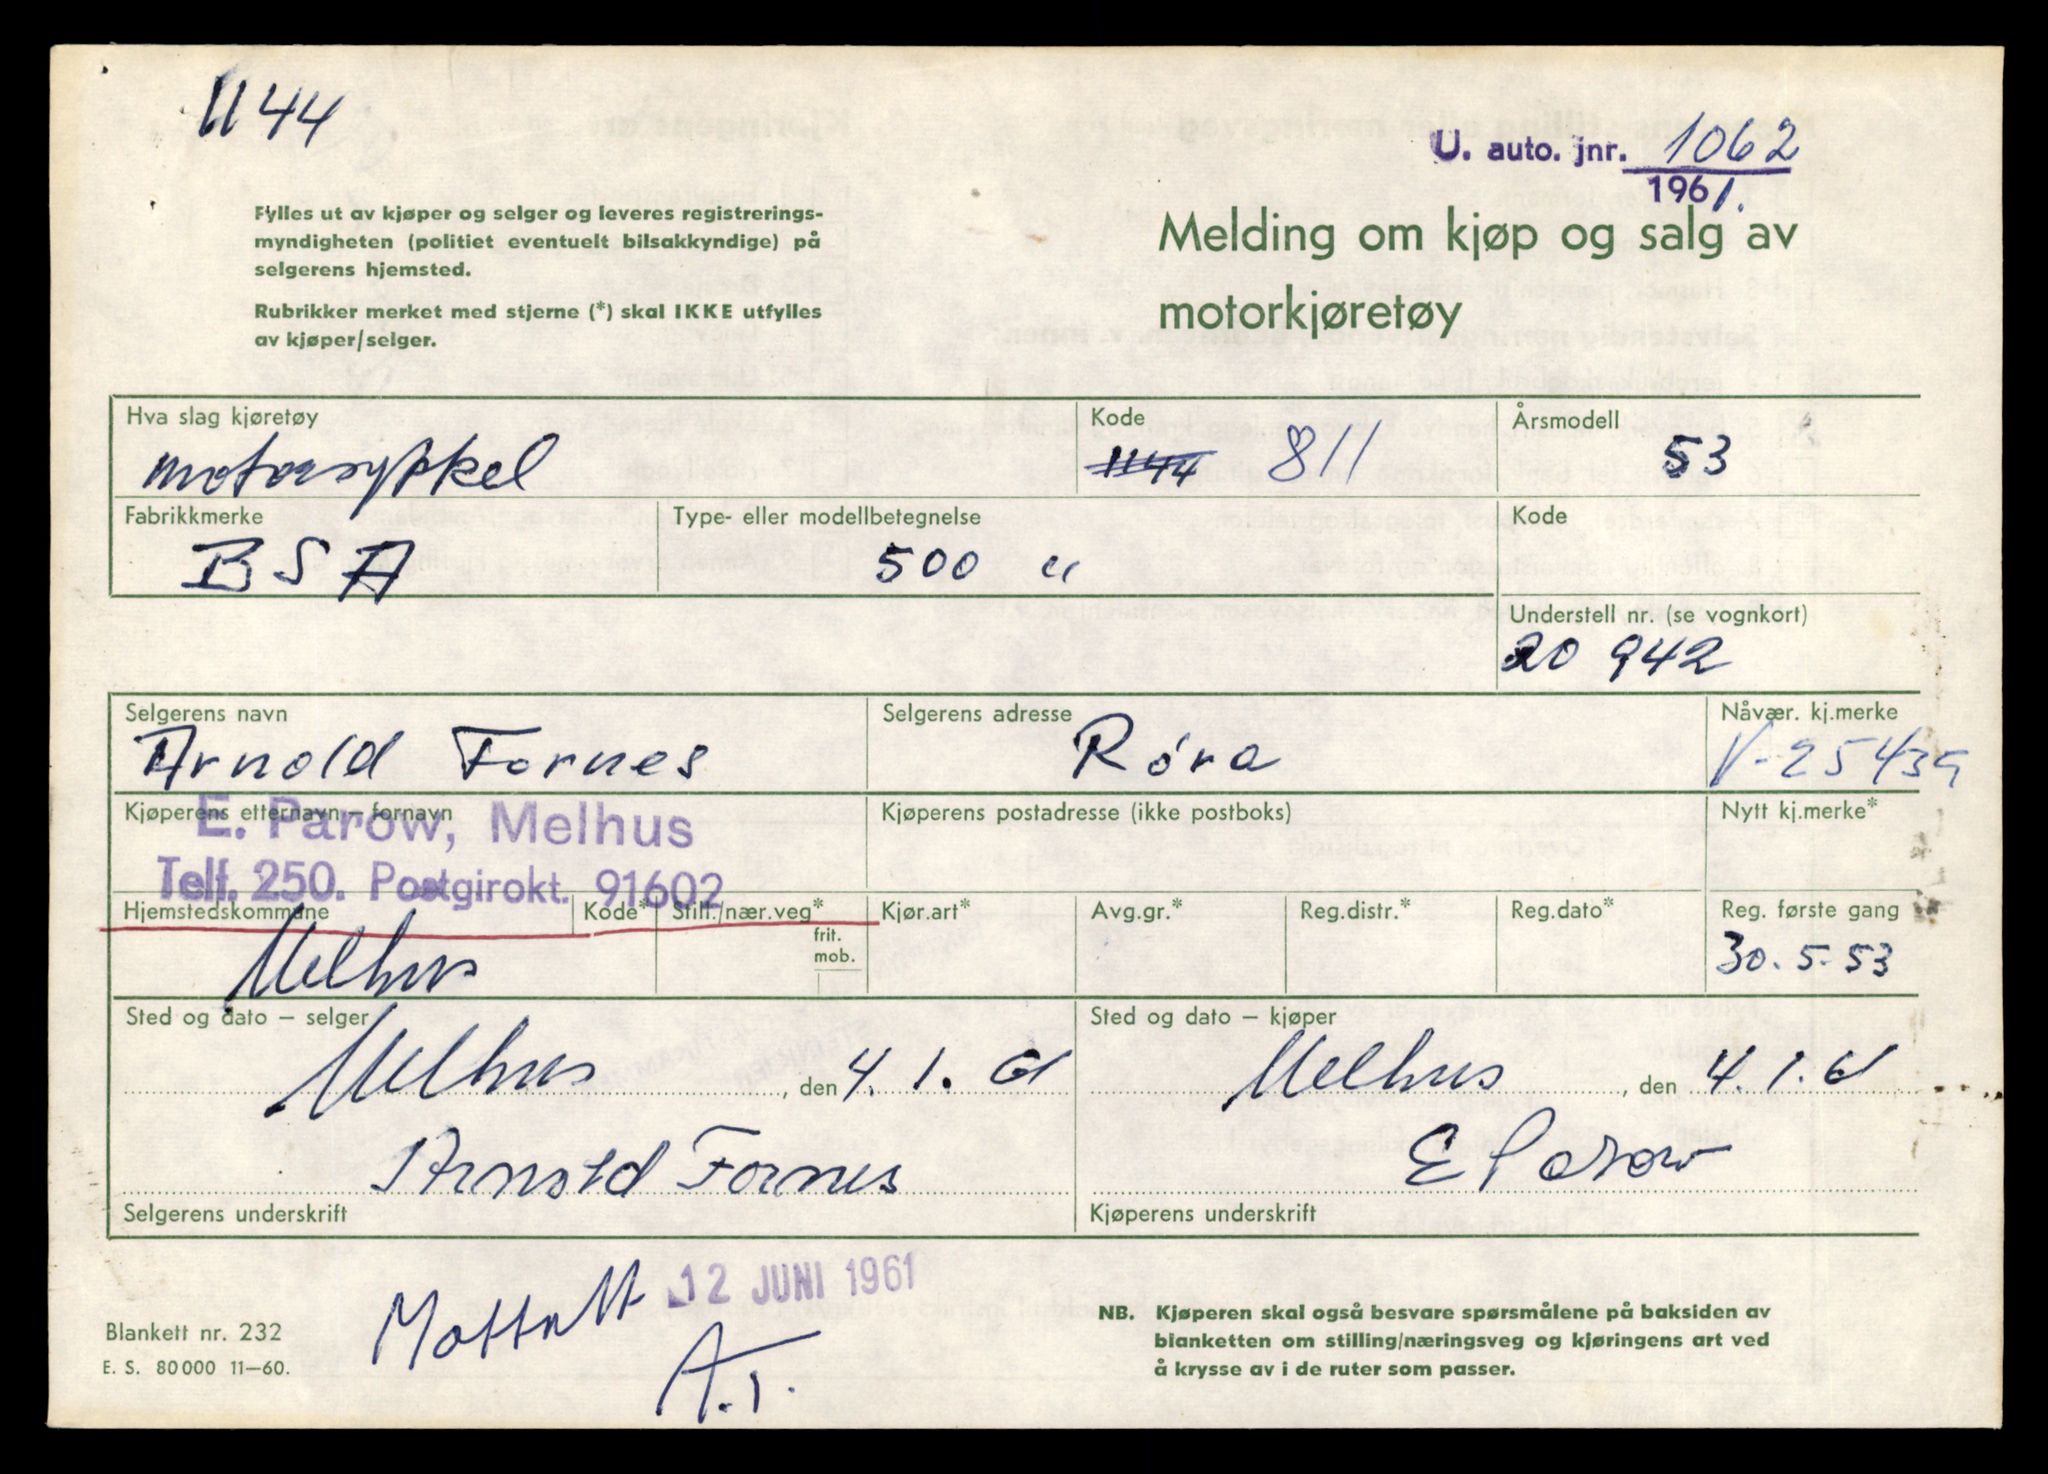 1144
U. auto. jnr. 1062
1961.
Fylles ut av kjøper og selger og leveres registrerings-
myndigheten (politiet eventuelt bilsakkyndige) på
selgerens hjemsted.
Rubrikker merket med stjerne (*) skal IKKE utfylles
av kjøper/selger.
Melding om kjøp og salg av
motorkjøretøy
Hva slag kjøretøy
motorsykkel
Kode
1144 811
Årsmodell
53
Fabrikkmerke
BSA
Type- eller modellbetegnelse
500 cc
Kode
Understell nr. (se vognkort)
20 942
Selgerens navn
Arnold Fornes
Selgerens adresse
Røra
Nåvær. kj.merke
V-25439
Kjøperens etternavn – fornavn
E. Parow, Melhus
Telf. 250. Postgirokt. 91602
Kjøperens postadresse (ikke postboks)
Nytt kj.merke*
Hjemstedskommune
Melhus
Kode*
Still./nær.veg*
frit.
mob.
Kjør.art*
Avg.gr.*
Reg.distr.*
Reg.dato*
Reg. første gang
30.5.53
Sted og dato – selger
Melhus, den 4.1.61
Arnold Fornes
Selgerens underskrift
Sted og dato – kjøper
Melhus, den 4.1.61
E Parow
Kjøperens underskrift
Mottatt 12 JUNI 1961
A.I.
Blankett nr. 232
E. S. 80000 11–60.
NB. Kjøperen skal også besvare spørsmålene på baksiden av
blanketten om stilling/næringsveg og kjøringens art ved
å krysse av i de ruter som passer.